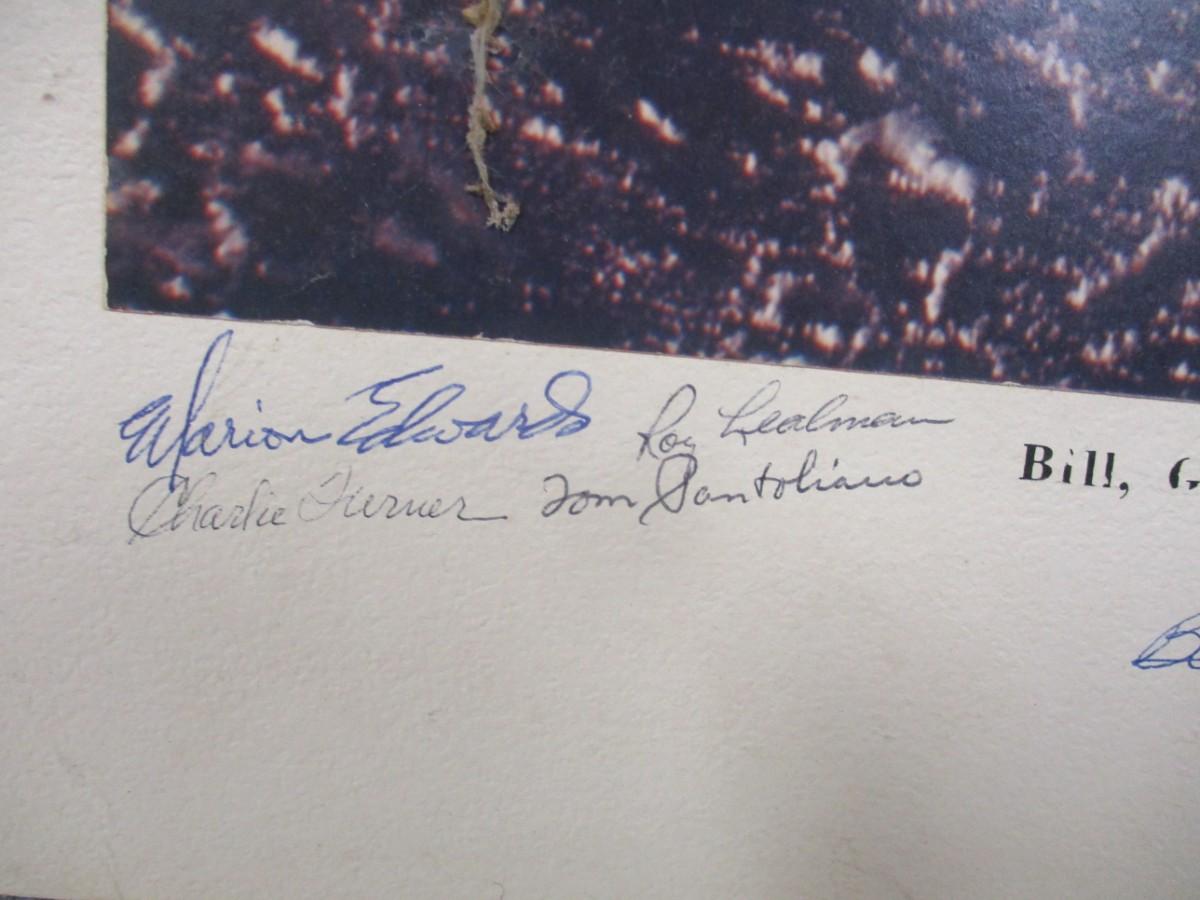 Marion Edwards Roy Lealman
Charlie Turner Tom Santoliano
Bill,